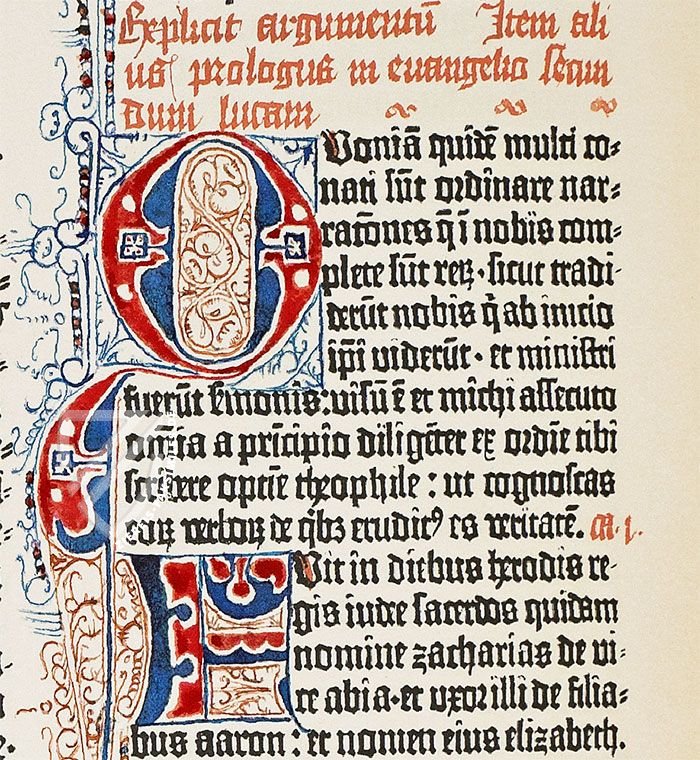 Explicit argumentū Item ali
us prologus in euangelio secun
dum lucam
QVoniā quidē multi co-
nati sūt ordinare nar-
rationes q̄ ī nobis com-
plete sūt reꝝ · sicut tradi-
derūt nobis q̄ ab inicio
ip̄i viderūt · et ministri
fuerūt sermonis : visū ē et michi assecuto
omīa a prīcipio diligēter ex ordīe tibi
scribere optīe theophile : ut cognoscas
eoꝝ verboꝝ de q̄bꝫ erudit⁹ es veritatē. ca. j.
FVit in diebus herodis re-
gis iudee sacerdos quidam
nomine zacharias de vi-
ce abia · et uxor illi de filia-
bus aaron : et nomen eius elizabeth.